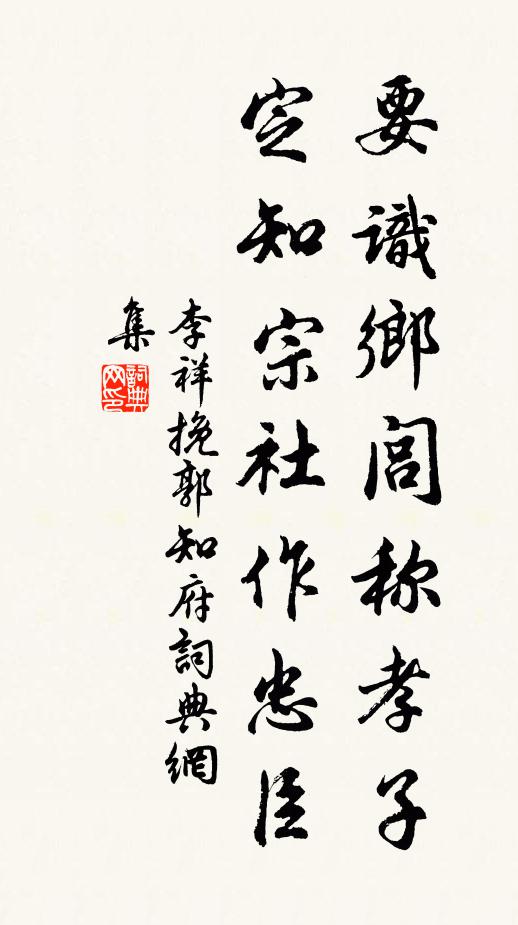 要識鄉閭称孝子
定知宗社作忠臣
李祥挽郭知府詞典網
集
詞典
网印